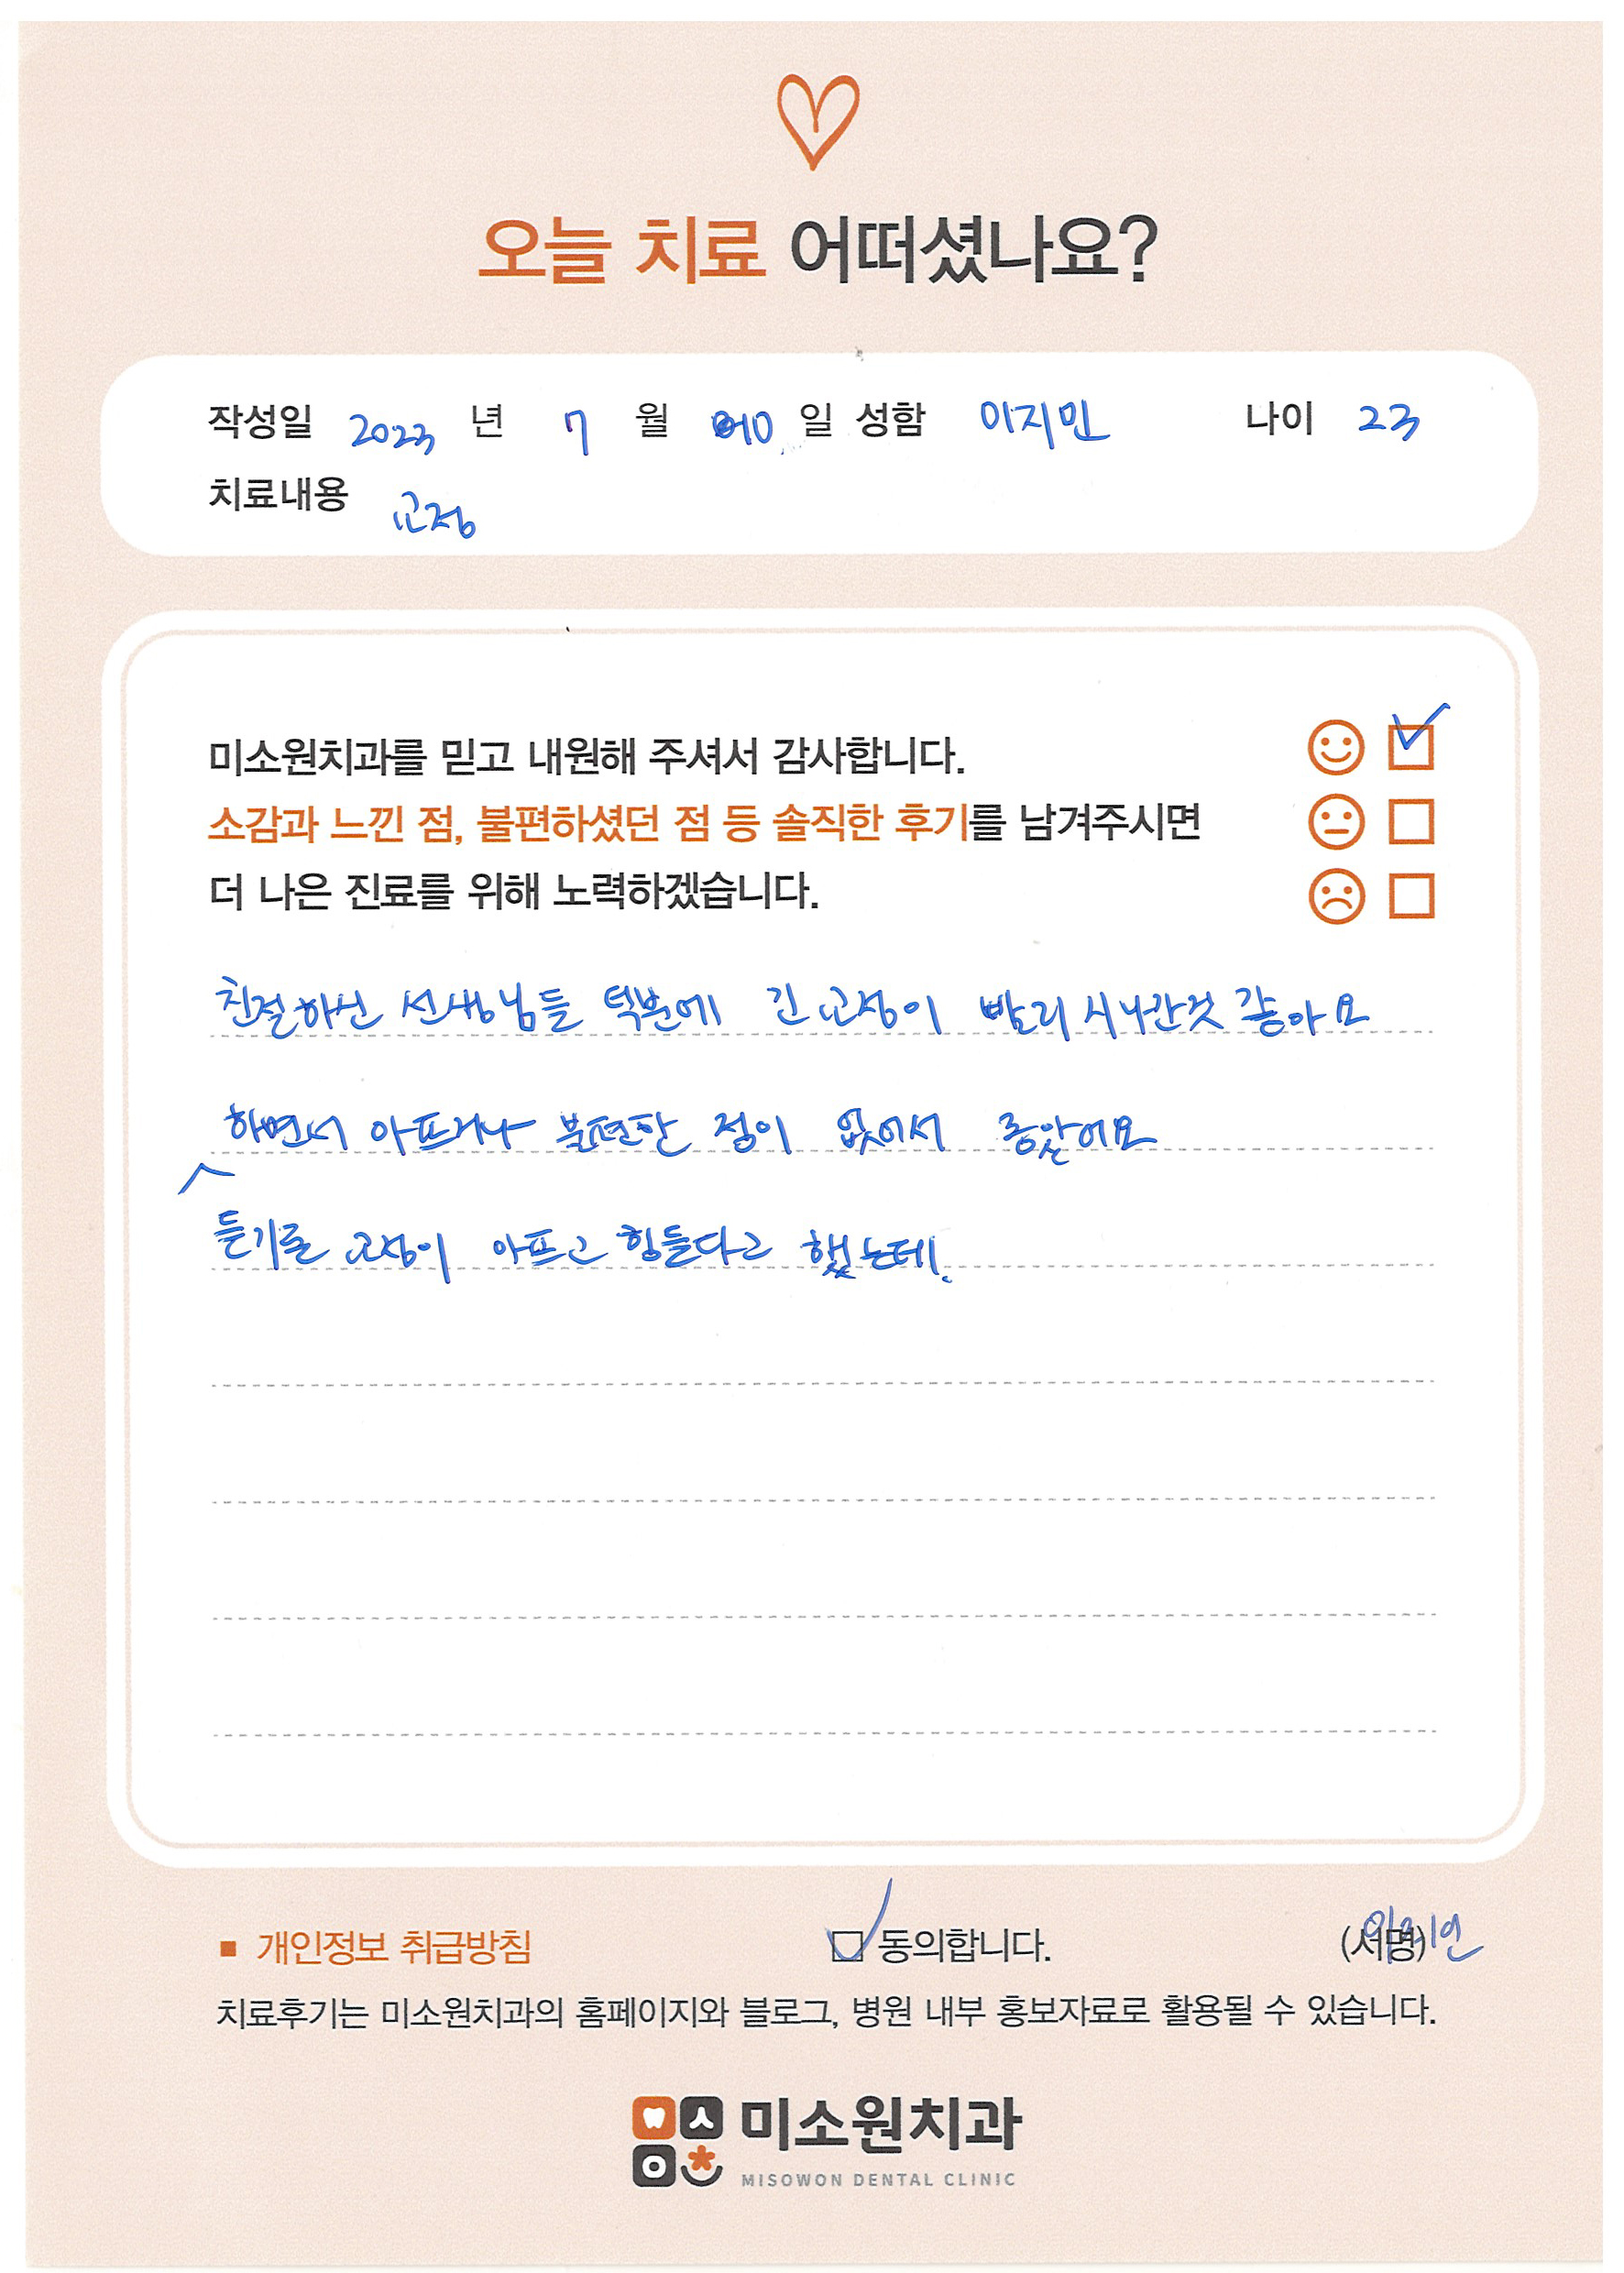 오늘 치료 어떠셨나요?
작성일 2023 년 7 월 10 일 성함 이지민 나이 23
치료내용 교정
미소원치과를 믿고 내원해 주셔서 감사합니다.
소감과 느낀 점, 불편하셨던 점 등 솔직한 후기를 남겨주시면
더 나은 진료를 위해 노력하겠습니다.
친절하신 선생님들 덕분에 긴 교정이 빨리 지나간것 같아요
하면서 아프거나 불편한 점이 없어서 좋았어요
듣기로 교정이 아프고 힘들다고 했는데.
■ 개인정보 취급방침 동의합니다. (서명)
치료후기는 미소원치과의 홈페이지와 블로그, 병원 내부 홍보자료로 활용될 수 있습니다.
미소원치과
MISOWON DENTAL CLINIC